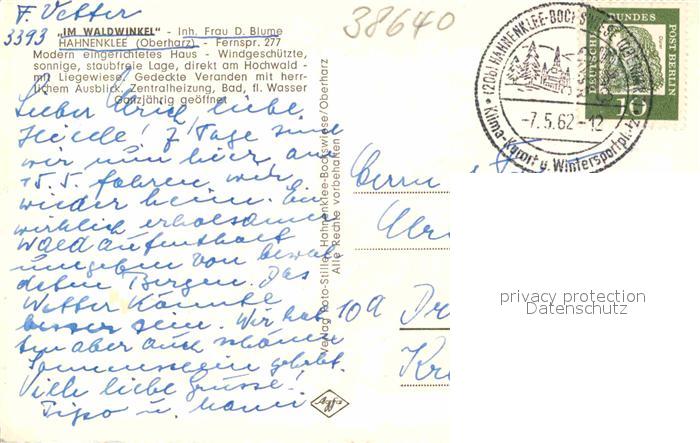 F. Vetter
3393
"IM WALDWINKEL" - Inh. Frau D. Blume
HAHNENKLEE (Oberharz) - Fernspr. 277
Modern eingerichtetes Haus - Windgeschützte,
sonnige, staubfreie Lage, direkt am Hochwald -
mit Liegewiese, Gedeckte Veranden mit herr-
lichem Ausblick, Zentralheizung, Bad, fl. Wasser
Ganzjährig geöffnet
Lieber Ulrich, liebe
Heide! 7 Tage sind
wir nun hier, am
15.5. fahren wir
wieder heim. Ein
wirklich erholsamer
Waldaufenthalt
umgeben von bewal
deten Bergen. Das
Wetter könnte
besser sein. Wir hat
ten aber auch schönen
Sonnenschein gehabt.
Viele liebe Grüsse!
u. Mami
Verlag Foto-Stiller, Hahnenklee-Bockswiese/Oberharz
Alle Rechte vorbehalten
Agfa
38640
(20b) HAHNENKLEE-BOCKSWIESE (OBERHARZ)
-7.5.62-12
Klima-Kurort u. Wintersportpl.
DEUTSCHE BUNDESPOST BERLIN
10
Herrn
Ulri
10a Dr
Kr
privacy protection
Datenschutz